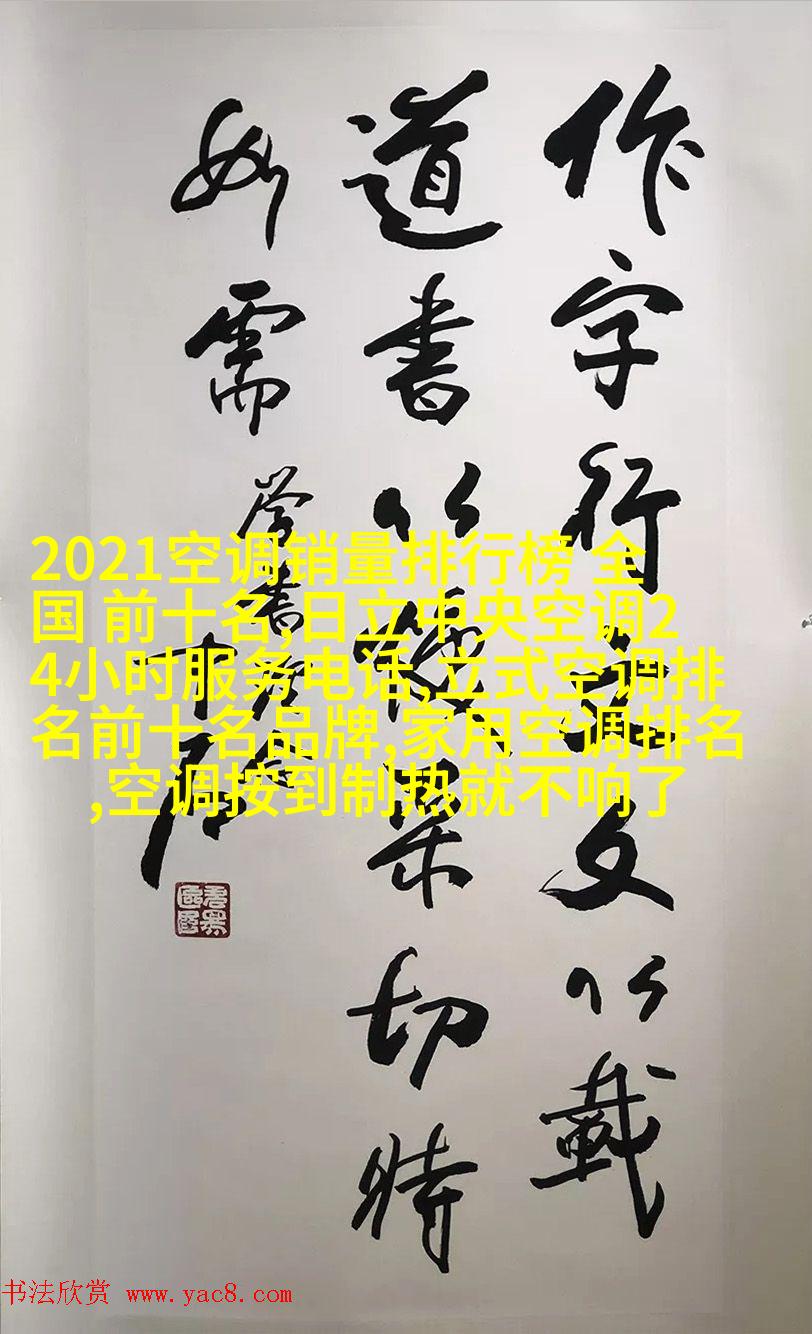 作字行文以載
道書以采切時
如需
2021空调销量排行榜 全
国 前十名,日立中央空调2
4小时服务电话,立式空调排
名前十名品牌,家用空调排名
,空调按到制热就不响了
书法欣赏 www.yac8.com